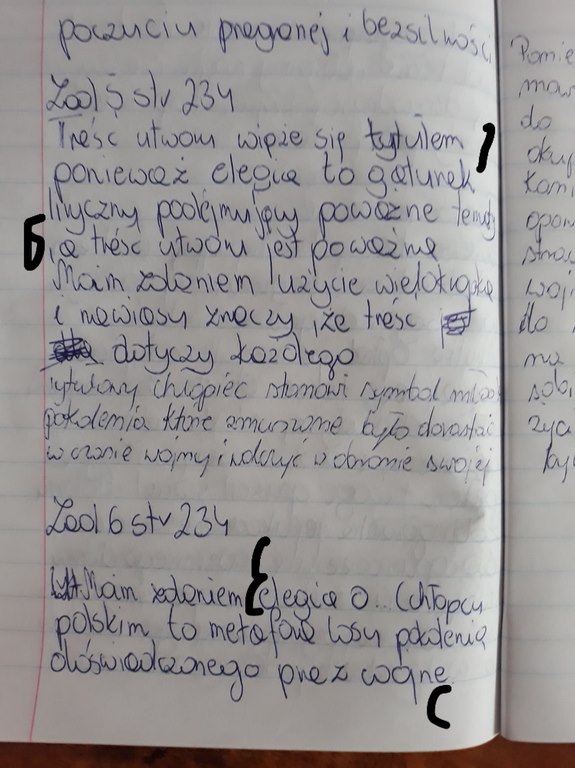 poczuciu pregranej i bezsilności
Zad 5 str 234
Treść utworu wiąże się tytułem
ponieważ elegia to gatunek
liryczny podejmujący poważne tematy
, a treść utworu jest poważna
Moim zdaniem użycie wielokropka
i nawiasu znaczy że treść
dotyczy każdego
tytułowy chłopiec stanowi symbol
pokolenia które zmuszone było dorastać
w czasie wojny i walczyć w obronie swojej
Zad 6 str 234
Moim zdaniem elegia o.. (chłopcu
polskim to metafora losu pokolenia
doświadczonego przez wojnę
Pomię
do
do
na
życi